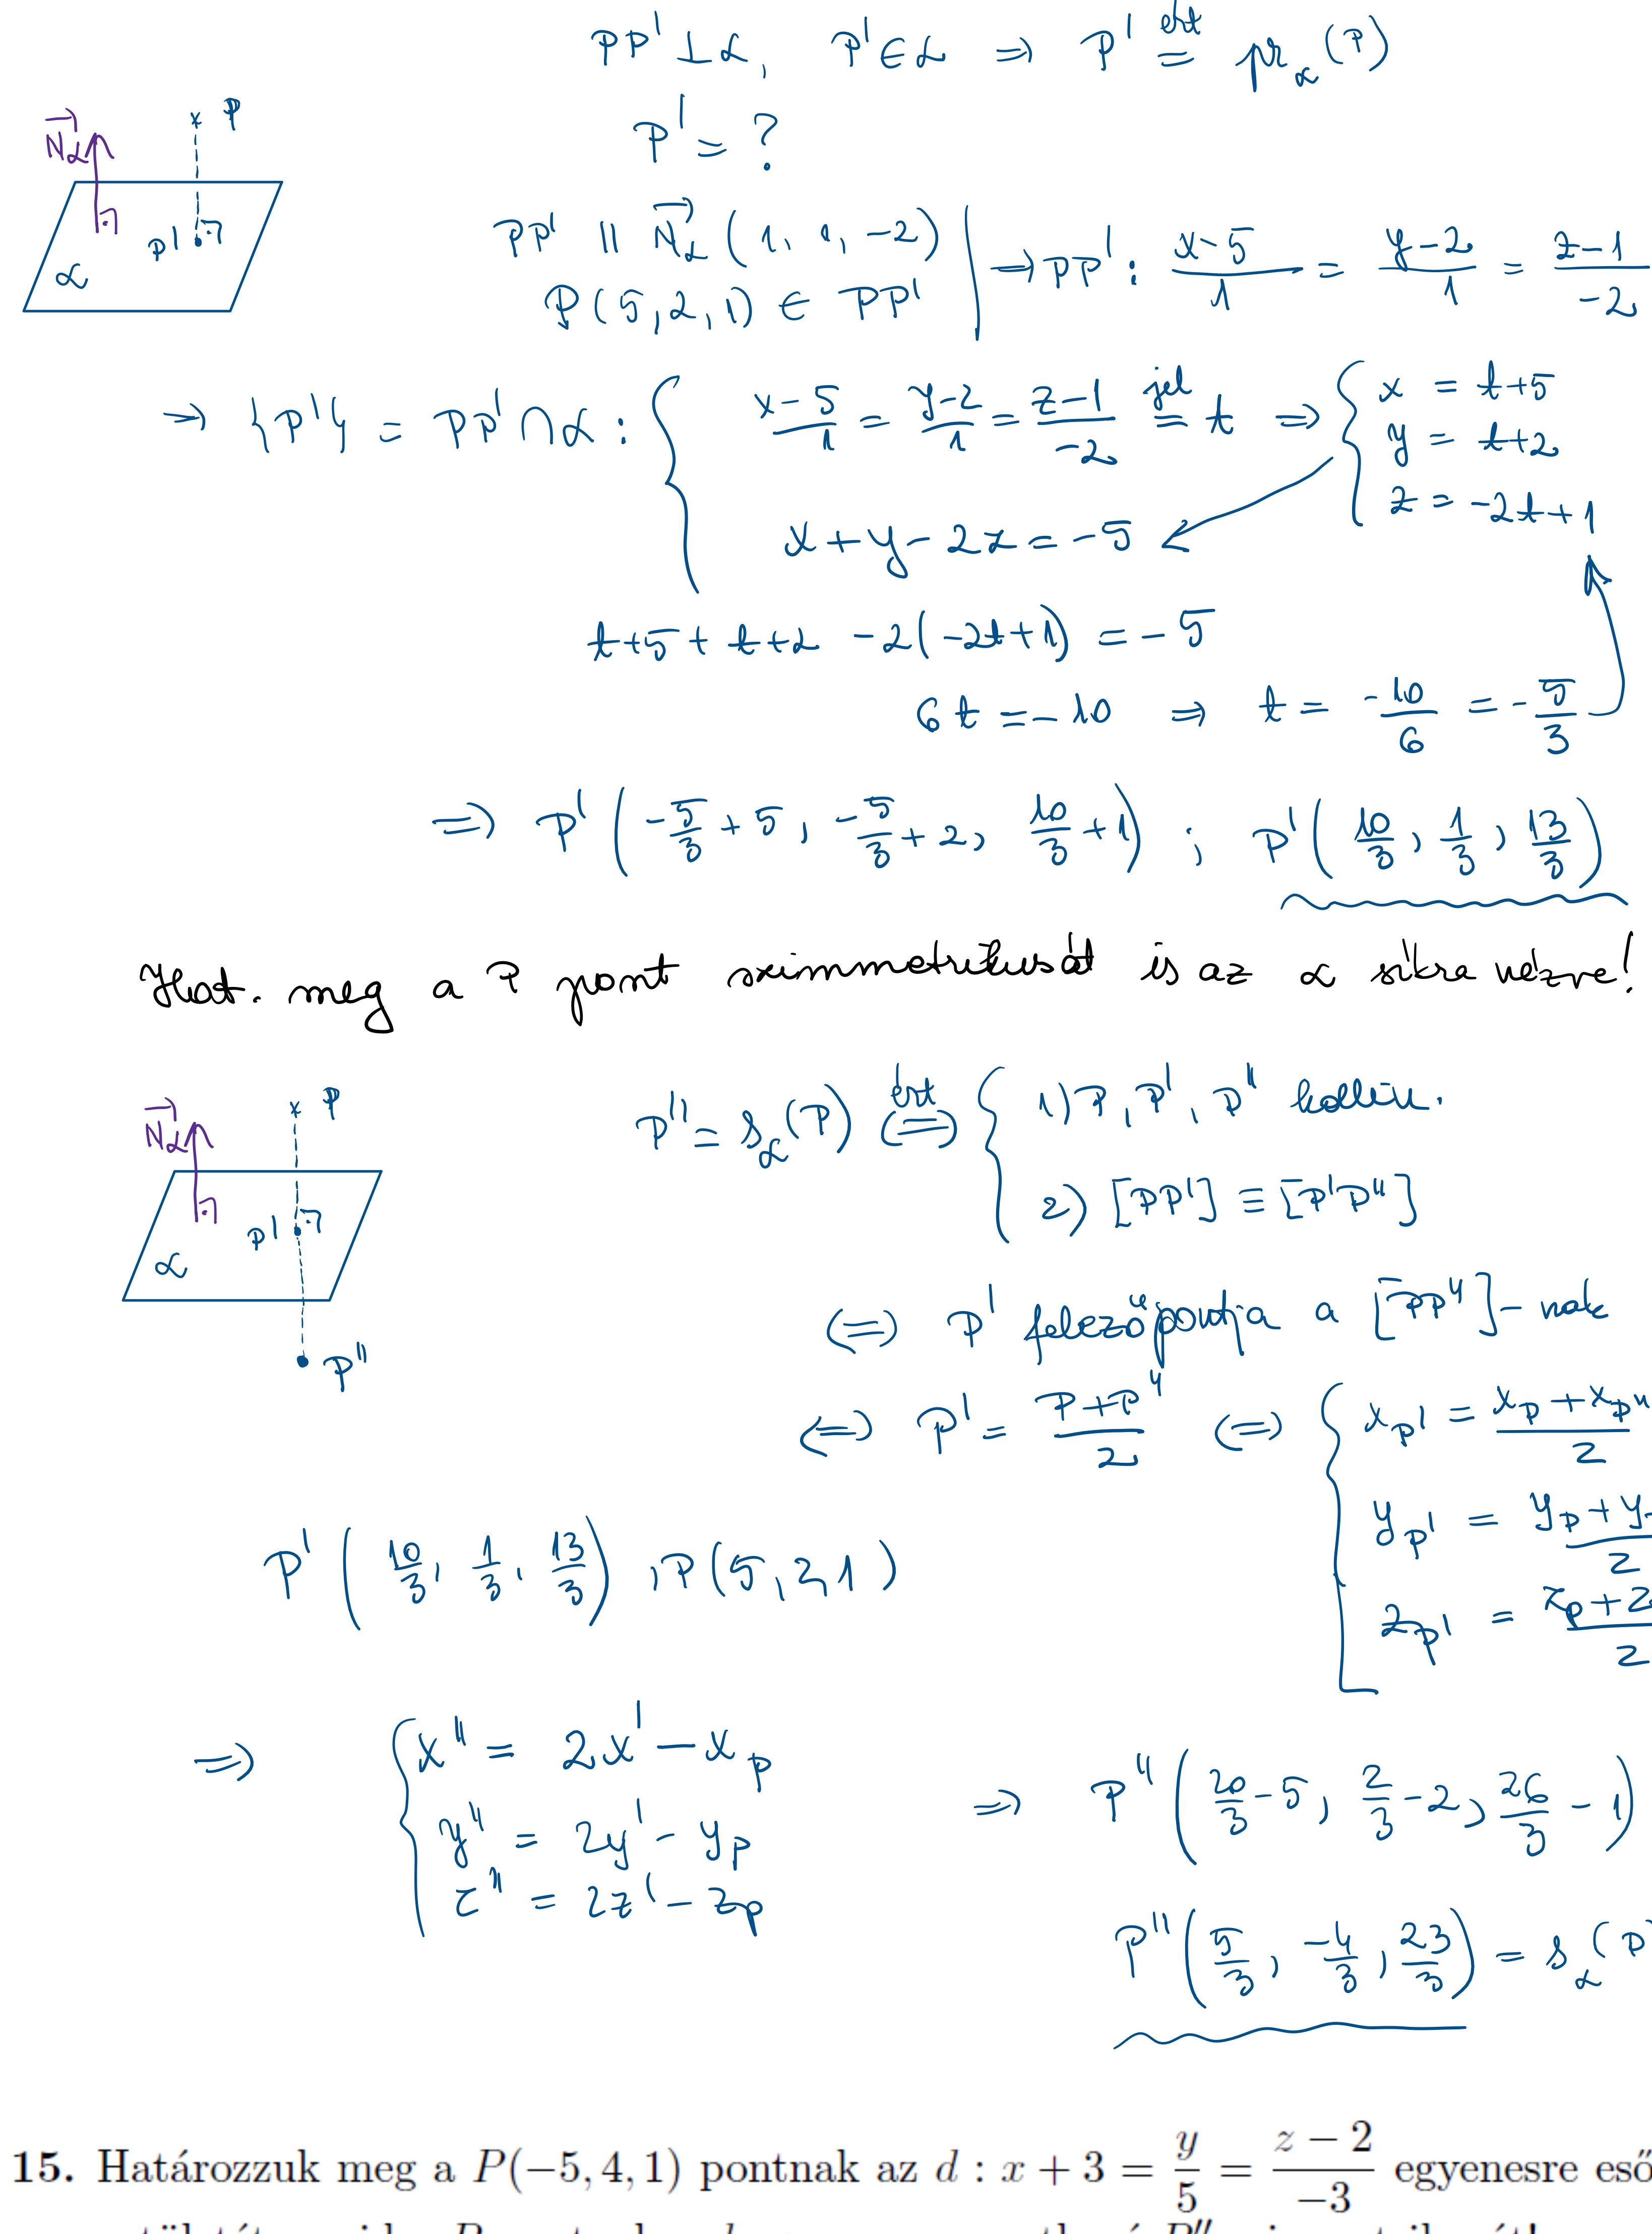 PP' ⊥ α, P' ∈ α ⇒ P' =^{ért} pr_α(P)
P' = ?
N⃗_α
P
P'
α
PP' ∥ N⃗_α (1, 1, -2)
P(5, 2, 1) ∈ PP'
⇒ PP' : (x-5)/1 = (y-2)/1 = (z-1)/-2
⇒ {P'} = PP' ∩ α : { (x-5)/1 = (y-2)/1 = (z-1)/-2 =^{jel} t ⇒ { x = t+5
y = t+2
z = -2t+1
x + y - 2z = -5
t+5 + t+2 -2(-2t+1) = -5
6t = -10 ⇒ t = -10/6 = -5/3
⇒ P' (-5/3 + 5, -5/3 + 2, 10/3 + 1) ; P' (10/3, 1/3, 13/3)
Hat. meg a P pont szimmetrikusát is az α síkra nézve!
N⃗_α
P
P'
α
P''
P'' = s_α(P) ⇔^{ért} { 1) P, P', P'' kollin.
2) [PP'] ≡ [P'P'']
⇔ P' felezőpontja a [PP'']-nak
⇔ P' = (P+P'')/2 ⇔ { x_{P'} = (x_P + x_{P''})/2
y_{P'} = (y_P + y)/2
z_{P'} = (z_P + z)/2
P' (10/3, 1/3, 13/3), P(5, 2, 1)
⇒ { x'' = 2x' - x_P
y'' = 2y' - y_P
z'' = 2z' - z_P
⇒ P'' (20/3 - 5, 2/3 - 2, 26/3 - 1)
P'' (5/3, -4/3, 23/3) = s_α(P
15. Határozzuk meg a P(−5, 4, 1) pontnak az d : x + 3 = y/5 = (z − 2)/−3 egyenesre eső